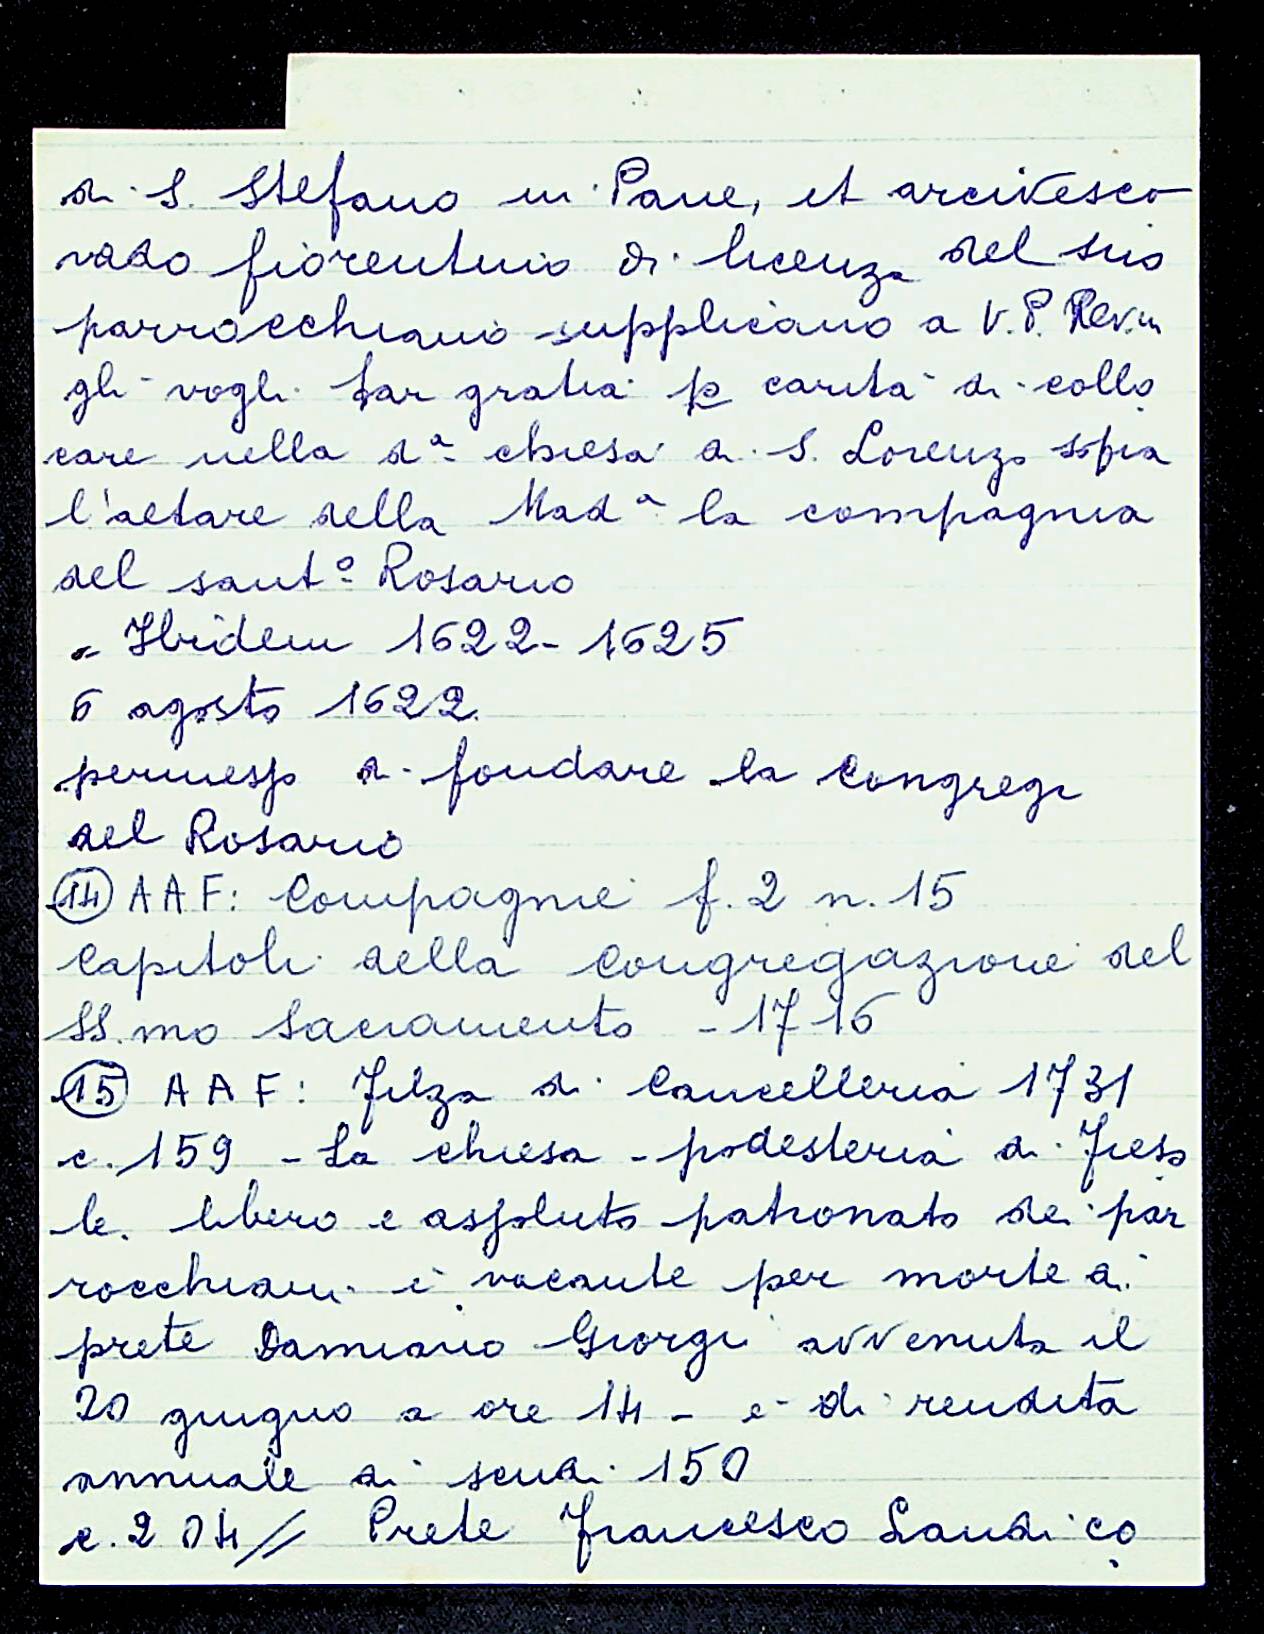 di S. Stefano in Pane, et arcivesco
vado fiorentino di licenza del suo
parrocchiano supplicano a V.P. Rev.m
gli vogli far gratia p carità di collo
care nella d.a chiesa di S. Lorenzo sopra
l'altare della Mad.a la compagnia
del sant.o Rosario
" Ibidem 1622-1625
6 agosto 1622.
permesso di fondare la Congreg.
del Rosario
(14) AAF: Compagnie f. 2 n. 15
Capitoli della Congregazione del
SS.mo Sacramento - 1716
(15) AAF: Filza di Cancelleria 1731
c. 159 - La chiesa - podesteria di Fieso
le. libero e assoluto patronato dei par
rocchiani è vacante per morte di
prete Damiano Giorgi avvenuta il
20 giugno a ore 14 - e di rendita
annuale di scudi 150
c. 204// Prete Francesco Landi co